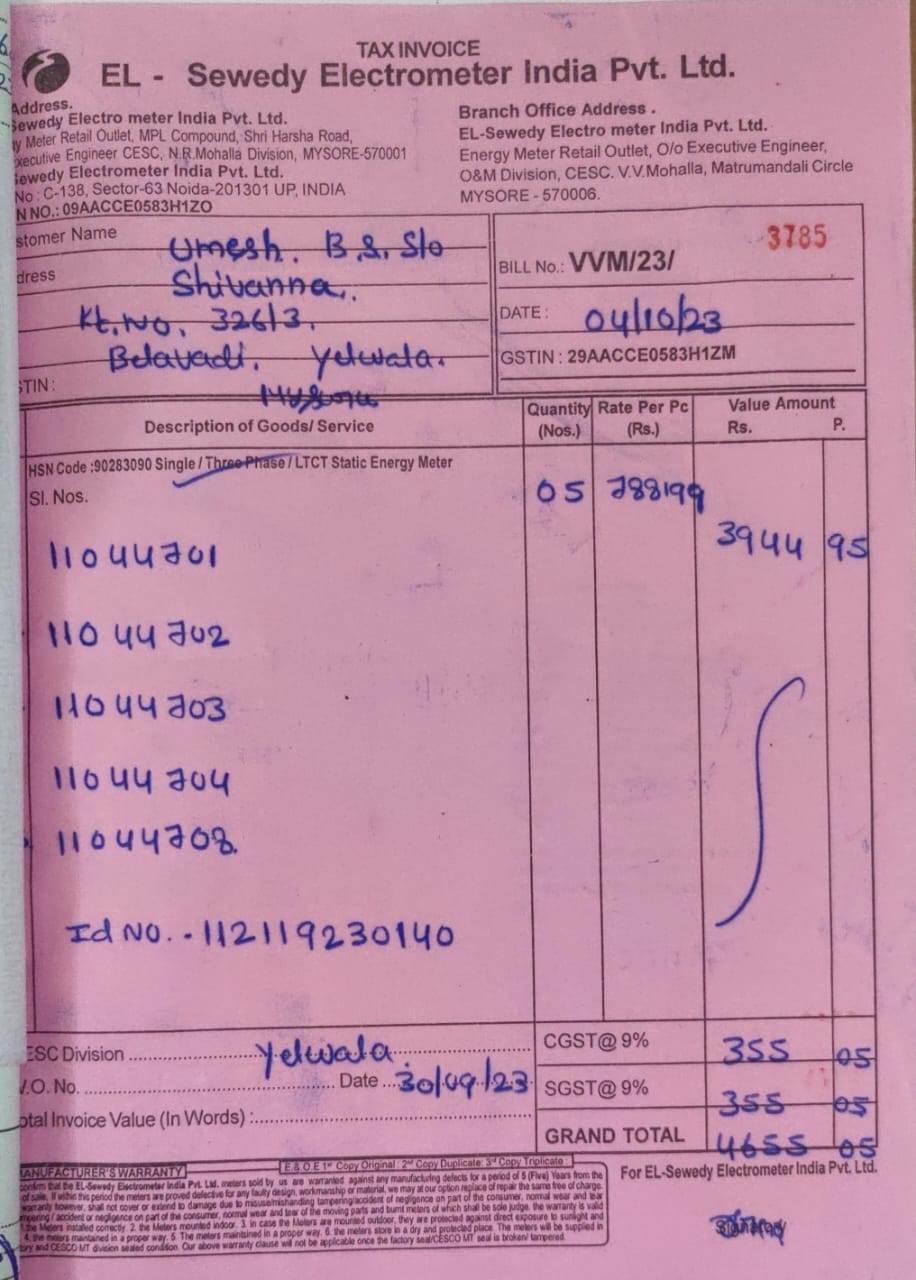 TAX INVOICE
EL - Sewedy Electrometer India Pvt. Ltd.
Address.
Sewedy Electro meter India Pvt. Ltd.
Meter Retail Outlet, MPL Compound, Shri Harsha Road,
Executive Engineer CESC, N.R.Mohalla Division, MYSORE-570001
Sewedy Electrometer India Pvt. Ltd.
No : C-138, Sector-63 Noida-201301 UP, INDIA
N NO.: 09AACCE0583H1ZO
Branch Office Address .
EL-Sewedy Electro meter India Pvt. Ltd.
Energy Meter Retail Outlet, O/o Executive Engineer,
O&M Division, CESC. V.V.Mohalla, Matrumandali Circle
MYSORE - 570006.
stomer Name Umesh. B.S. S/o
dress Shivanna.
Kt.No. 326/3.
Belavadi. Yelwala.
STIN : Mysore
3785
BILL No.: VVM/23/
DATE : 04/10/23
GSTIN : 29AACCE0583H1ZM
Description of Goods/ Service Quantity (Nos.) Rate Per Pc (Rs.) Value Amount Rs. P.
HSN Code :90283090 Single / Three Phase / LTCT Static Energy Meter
Sl. Nos. 05 788199
3944 95
11044701
11044702
11044703
11044704
11044708.
Id No. - 112119230140
ESC Division Yelwala CGST@ 9% 355 05
V.O. No. Date 30/09/23 SGST@ 9% 355 05
otal Invoice Value (In Words) : GRAND TOTAL 4655 05
E & O.E 1st Copy Original : 2nd Copy Duplicate: 3rd Copy Triplicate :
For EL-Sewedy Electrometer India Pvt. Ltd.
MANUFACTURER'S WARRANTY
confirm that the EL-Sewedy Electrometer India Pvt. Ltd. meters sold by us are warranted against any manufacturing defects for a period of 5 (Five) Years from the
of sale. If within this period the meters are proved defective for any faulty design, workmanship or material, we may at our option replace of repair the same free of charge.
warranty however, shall not cover or extend to damage due to misuse/mishandling tampering/accident of negligence on part of the consumer, normal wear and tear
mpering / accident or negligence on part of the consumer, normal wear and tear of the moving parts and burnt meters of which shall be sole judge. the warranty is valid
the Meters installed correctly. 2. the Meters mounted indoor. 3. in case the Meters are mounted outdoor, they are protected against direct exposure to sunlight and
4. the meters maintained in a proper way. 5. The meters maintained in a proper way. 6. the meters store in a dry and protected place. The meters will be supplied in
tory and CESCO MT division sealed condition. Our above warranty clause will not be applicable once the factory seal/CESCO MT seal is broken/ tampered.